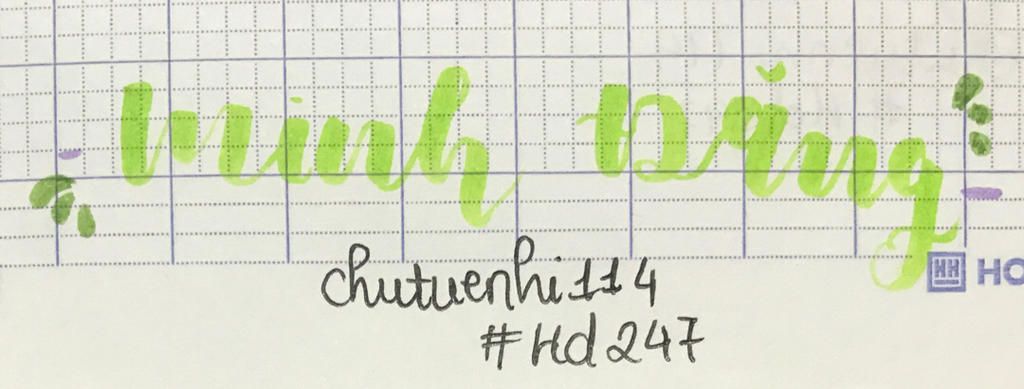 Minh Đăng
HH HO
chutuenhi114
#Hd247